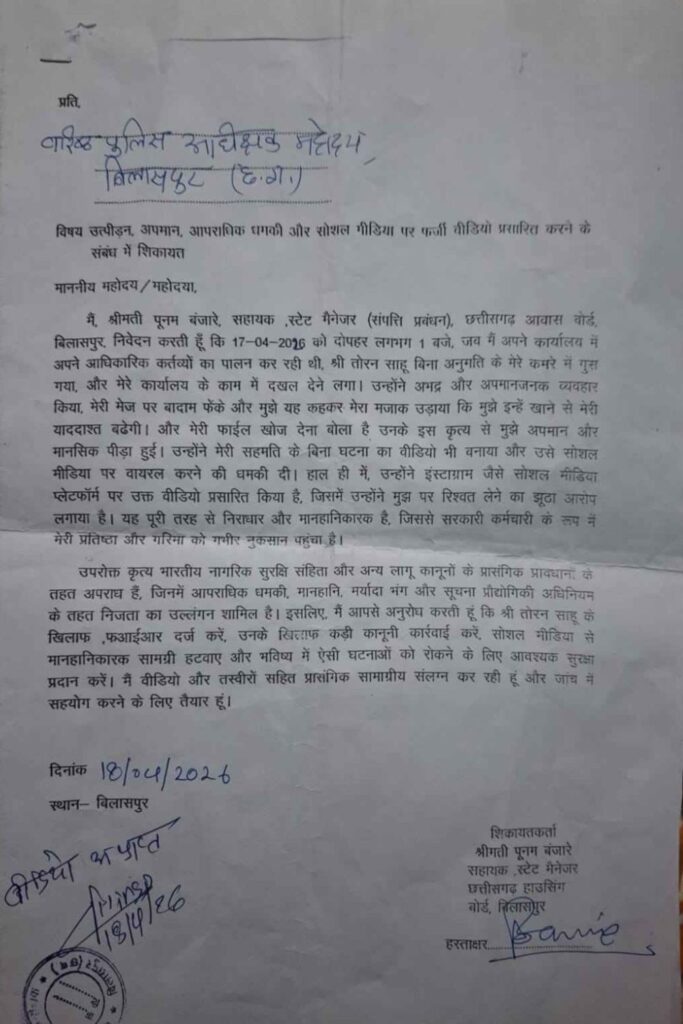 प्रति,
वरिष्ठ पुलिस अधीक्षक महोदय,
बिलासपुर (छ.ग.)
विषय उत्पीड़न, अपमान, आपराधिक धमकी और सोशल मीडिया पर फर्जी वीडियो प्रसारित करने के
संबंध में शिकायत
माननीय महोदय/महोदया,
मैं, श्रीमती पूनम बंजारे, सहायक ,स्टेट मैनेजर (संपत्ति प्रबंधन), छत्तीसगढ़ आवास बोर्ड,
बिलासपुर, निवेदन करती हूँ कि 17-04-2026 को दोपहर लगभग 1 बजे, जब मैं अपने कार्यालय में
अपने आधिकारिक कर्तव्यों का पालन कर रही थी, श्री तोरन साहू बिना अनुमति के मेरे कमरे में घुस
गया, और मेरे कार्यालय के काम में दखल देने लगा। उन्होंने अभद्र और अपमानजनक व्यवहार
किया, मेरी मेज पर बादाम फेंके और मुझे यह कहकर मेरा मजाक उड़ाया कि मुझे इन्हें खाने से मेरी
याददाश्त बढेगी। और मेरी फाईल खोज देना बोला है उनके इस कृत्य से मुझे अपमान और
मानसिक पीड़ा हुई। उन्होंने मेरी सहमति के बिना घटना का वीडियो भी बनाया और उसे सोशल
मीडिया पर वायरल करने की धमकी दी। हाल ही में, उन्होंने इंस्टाग्राम जैसे सोशल मीडिया
प्लेटफॉर्म पर उक्त वीडियो प्रसारित किया है, जिसमें उन्होंने मुझ पर रिश्वत लेने का झूठा आरोप
लगाया है। यह पूरी तरह से निराधार और मानहानिकारक है, जिससे सरकारी कर्मचारी के रूप में
मेरी प्रतिष्ठा और गरिमा को गंभीर नुकसान पहुंचा है।
उपरोक्त कृत्य भारतीय नागरिक सुरक्षि संहिता और अन्य लागू कानूनों के प्रासंगिक प्रावधानों के
तहत अपराध हैं, जिनमें आपराधिक धमकी, मानहानि, मर्यादा भंग और सूचना प्रौद्योगिकी अधिनियम
के तहत निजता का उल्लंगन शामिल है। इसलिए, मैं आपसे अनुरोध करती हूं कि श्री तोरन साहू के
खिलाफ ,फआईआर दर्ज करें, उनके खिलाफ कड़ी कानूनी कार्रवाई करें, सोशल मीडिया से
मानहानिकारक सामग्री हटवाए और भविष्य में ऐसी घटनाओं को रोकने के लिए आवश्यक सुरक्षा
प्रदान करें। मैं वीडियो और तस्वीरों सहित प्रासंगिक सामाग्रीय संलग्न कर रही हूं और जांच में
सहयोग करने के लिए तैयार हूं।
दिनांक 18/04/2026
स्थान– बिलासपुर
वीडियो अप्राप्त
18/4/26
शिकायतकर्ता
श्रीमती पूनम बंजारे
सहायक ,स्टेट मैनेजर
छत्तीसगढ़ हाउसिंग
बोर्ड, बिलासपुर
हस्ताक्षर